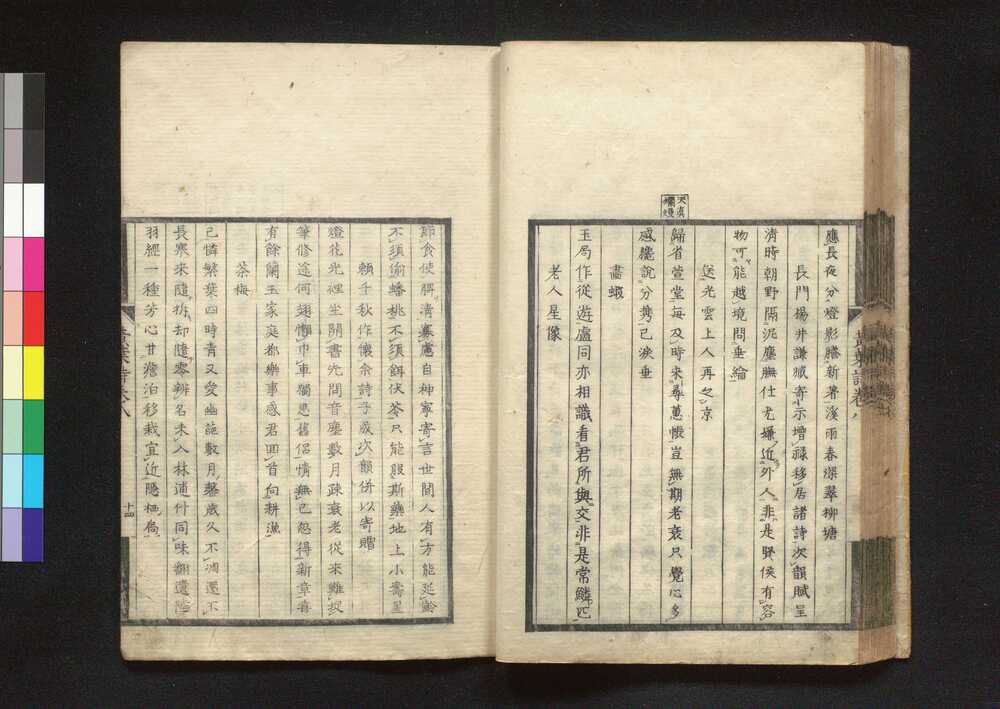 天真
爛熳
應長夜分燈影膽新著溪雨春深翠柳塘
長門揚井謙臧寄示增祿移居諸詩次韻賦呈
清時朝野隔泥塵膴仕尤嫌近外人非是賢侯有容
物可能越境問垂綸
送光雲上人再之京
歸省萱堂每及時來尋蕙帳豈無期老衰只覺心多
感纔說分携已淚垂
畫蝦
玉局作從遊盧同亦相識看君所與交非是常鱗匹
老人星像
節食使脾清寡慮自神寧寄言世間人有方能延齡
不須偷蟠桃不須餌伏苓只能服斯藥地上小壽星
賴千秋作懷余詩予歲次韻併以寄贈
燈花光裡坐開書先問音塵數月疎衰老從來難投
筆修途何翅懶巾車獨思舊侶情無已忽得新章喜
有餘蘭玉家庭都樂事感君回首向耕漁
茶梅
已憐繁葉四時青又愛幽葩數月馨歲久不凋還不
長寒來隨拆却隨零辨名未入林逋什同味翻遺陸
羽經一種芳心甘澹泊移栽宜近隱栖扃
十四